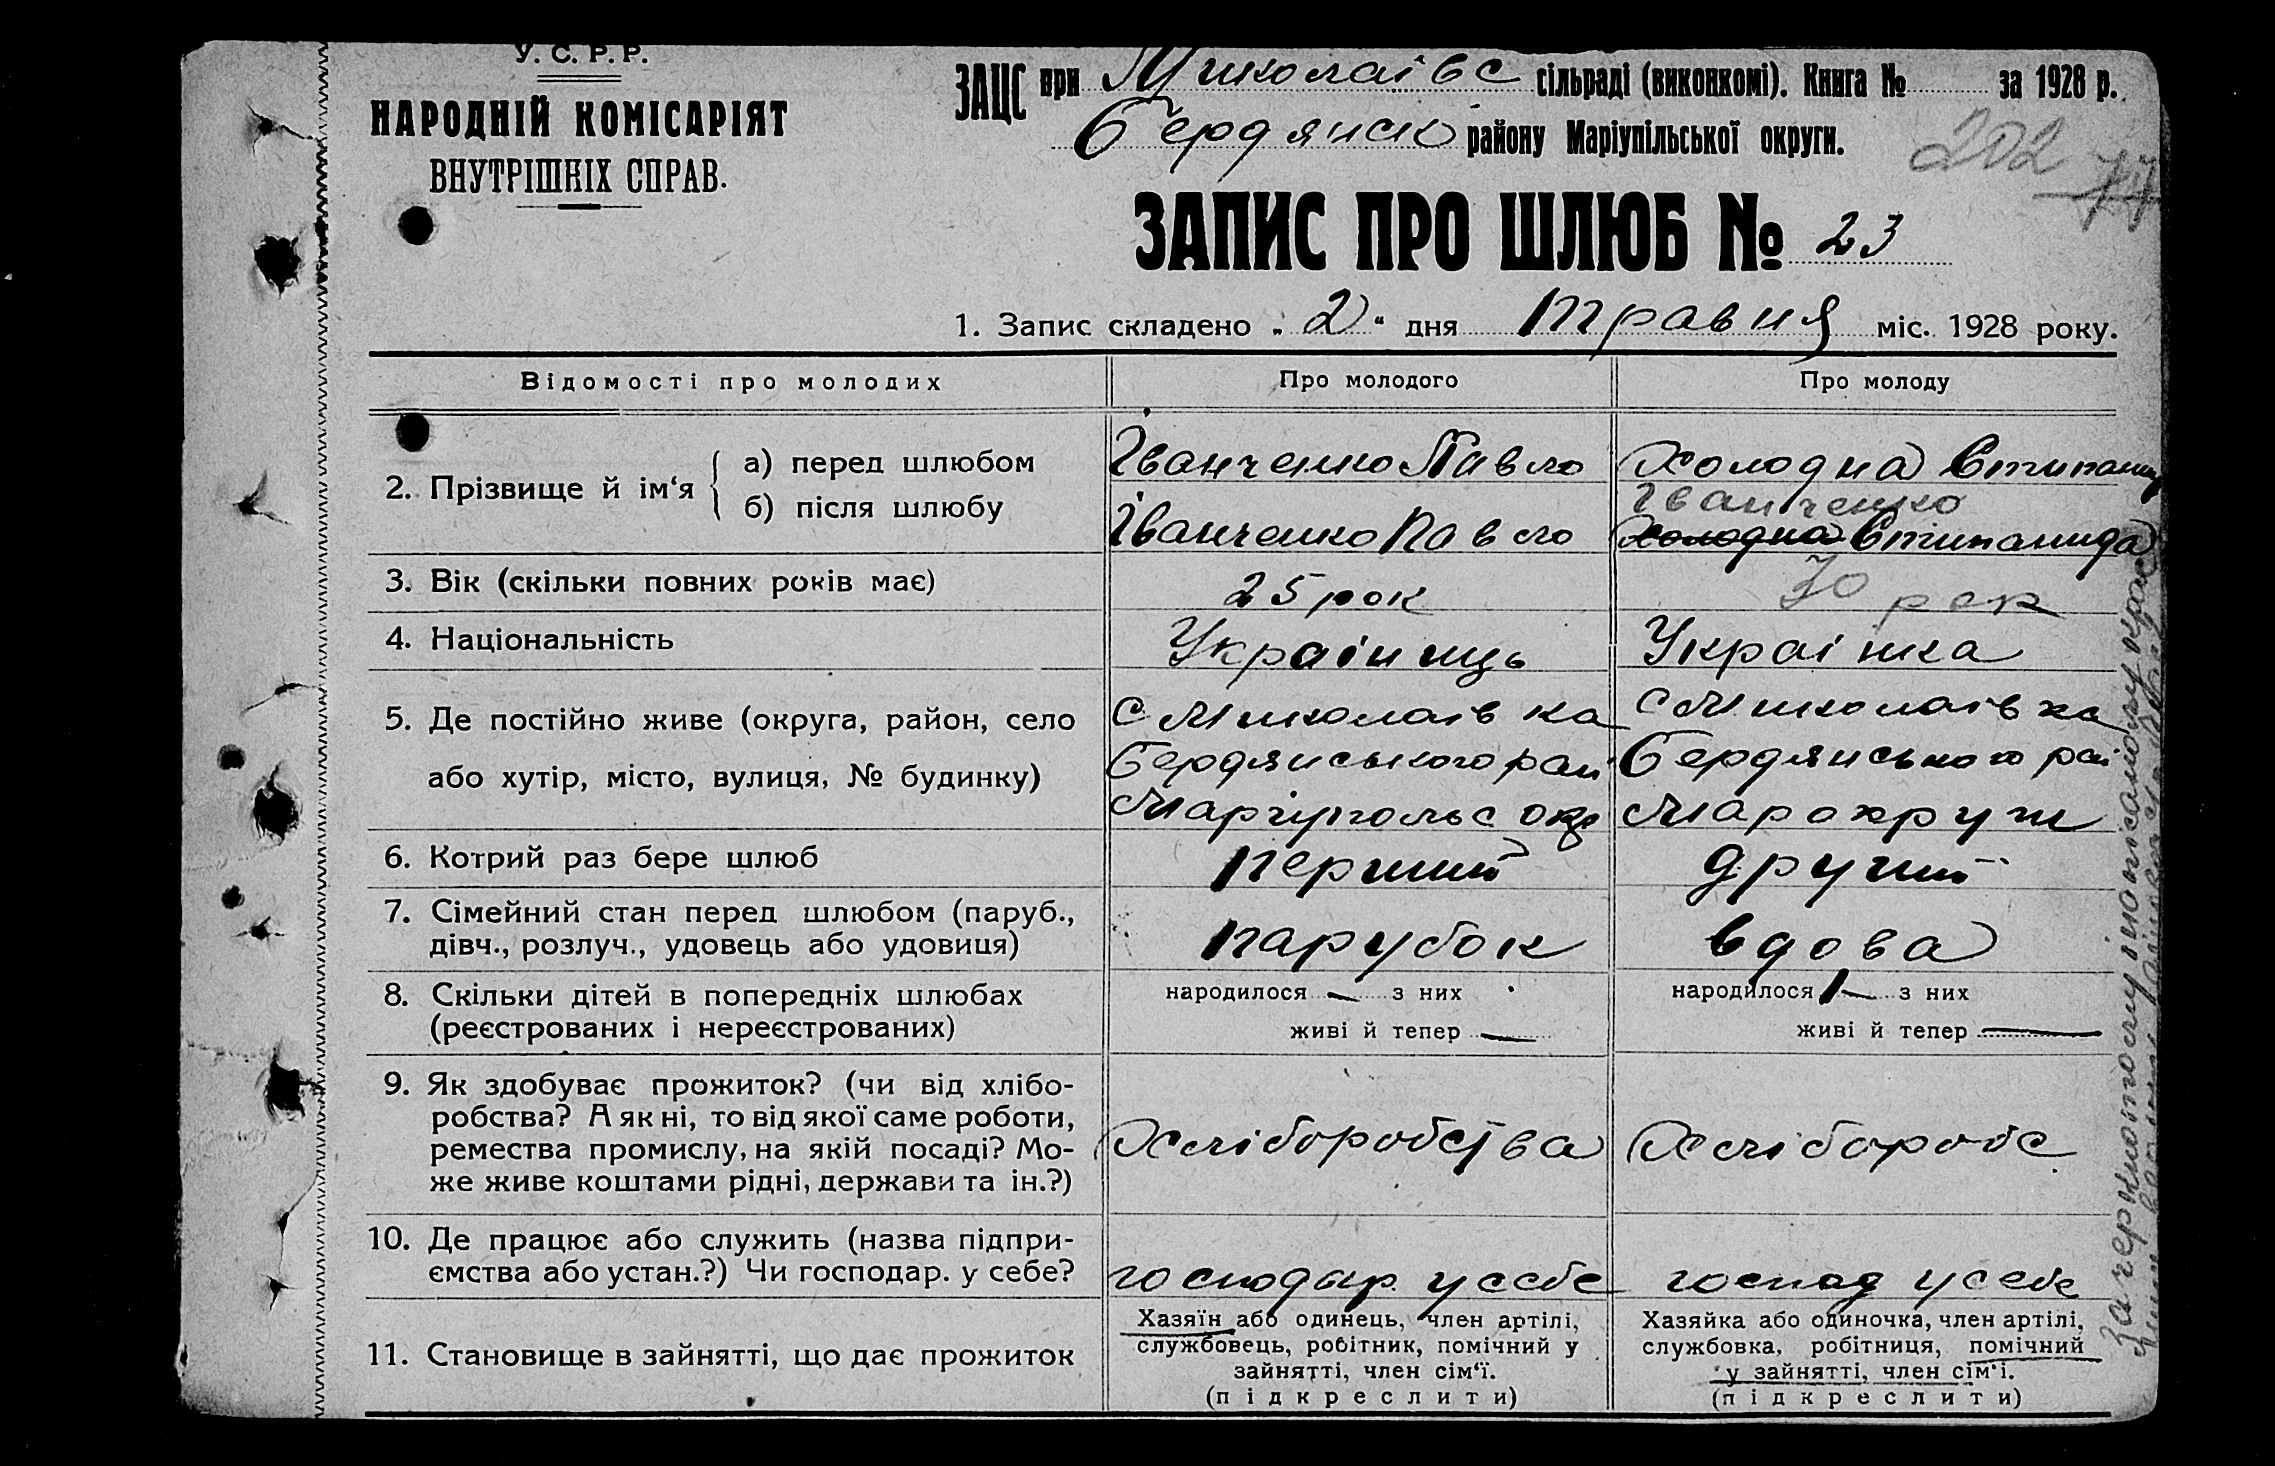 У. С. Р. Р.
НАРОДНІЙ КОМІСАРІЯТ
ВНУТРІШНІХ СПРАВ.
ЗАЦС при Миколаівс сільраді (виконкомі). Книга № за 1928 р.
Бердянськ району Маріупільської округи.
202 77
ЗАПИС ПРО ШЛЮБ № 23
1. Запис складено „ 2 “ дня травня міс. 1928 року.
Відомості про молодих Про молодого Про молоду
2. Прізвище й ім‘я
а) перед шлюбом Іванченко Павло Холодна
б) після шлюбу Іванченко Павло Іванченко Холодна Стипанида
3. Вік (скільки повних років має) 25 рок 30 рок
4. Національність Украіниць Украінка
5. Де постійно живе (округа, район, село с Миколаівка с Миколаівка
або хутір, місто, вулиця, № будинку) Бердянського рай Бердянського рай
Маріупольс окр Мар округи
6. Котрий раз бере шлюб перший другий
7. Сімейний стан перед шлюбом (паруб.,
дівч., розлуч., удовець або удовиця) парубок вдова
8. Скільки дітей в попередніх шлюбах народилося — з них народилося 1 — з них
(реєстрованих і нереєстрованих) живі й тепер — живі й тепер —
9. Як здобуває прожиток? (чи від хлібо-
робства? А як ні, то від якої саме роботи,
ремества промислу, на якій посаді? Мо- Хліборобства Хлібороб с
же живе коштами рідні, держави та ін.?)
10. Де працює або служить (назва підпри-
ємства або устан.?) Чи господар. у себе? господар. у себе господ у себе
11. Становище в зайнятті, що дає прожиток
Хазяїн або одинець, член артілі,
службовець, робітник, помічний у
зайнятті, член сім‘ї.
(підкреслити)
Хазяйка або одиночка, член артілі,
службовка, робітниця, помічний
у зайнятті, член сім‘ї.
(підкреслити)